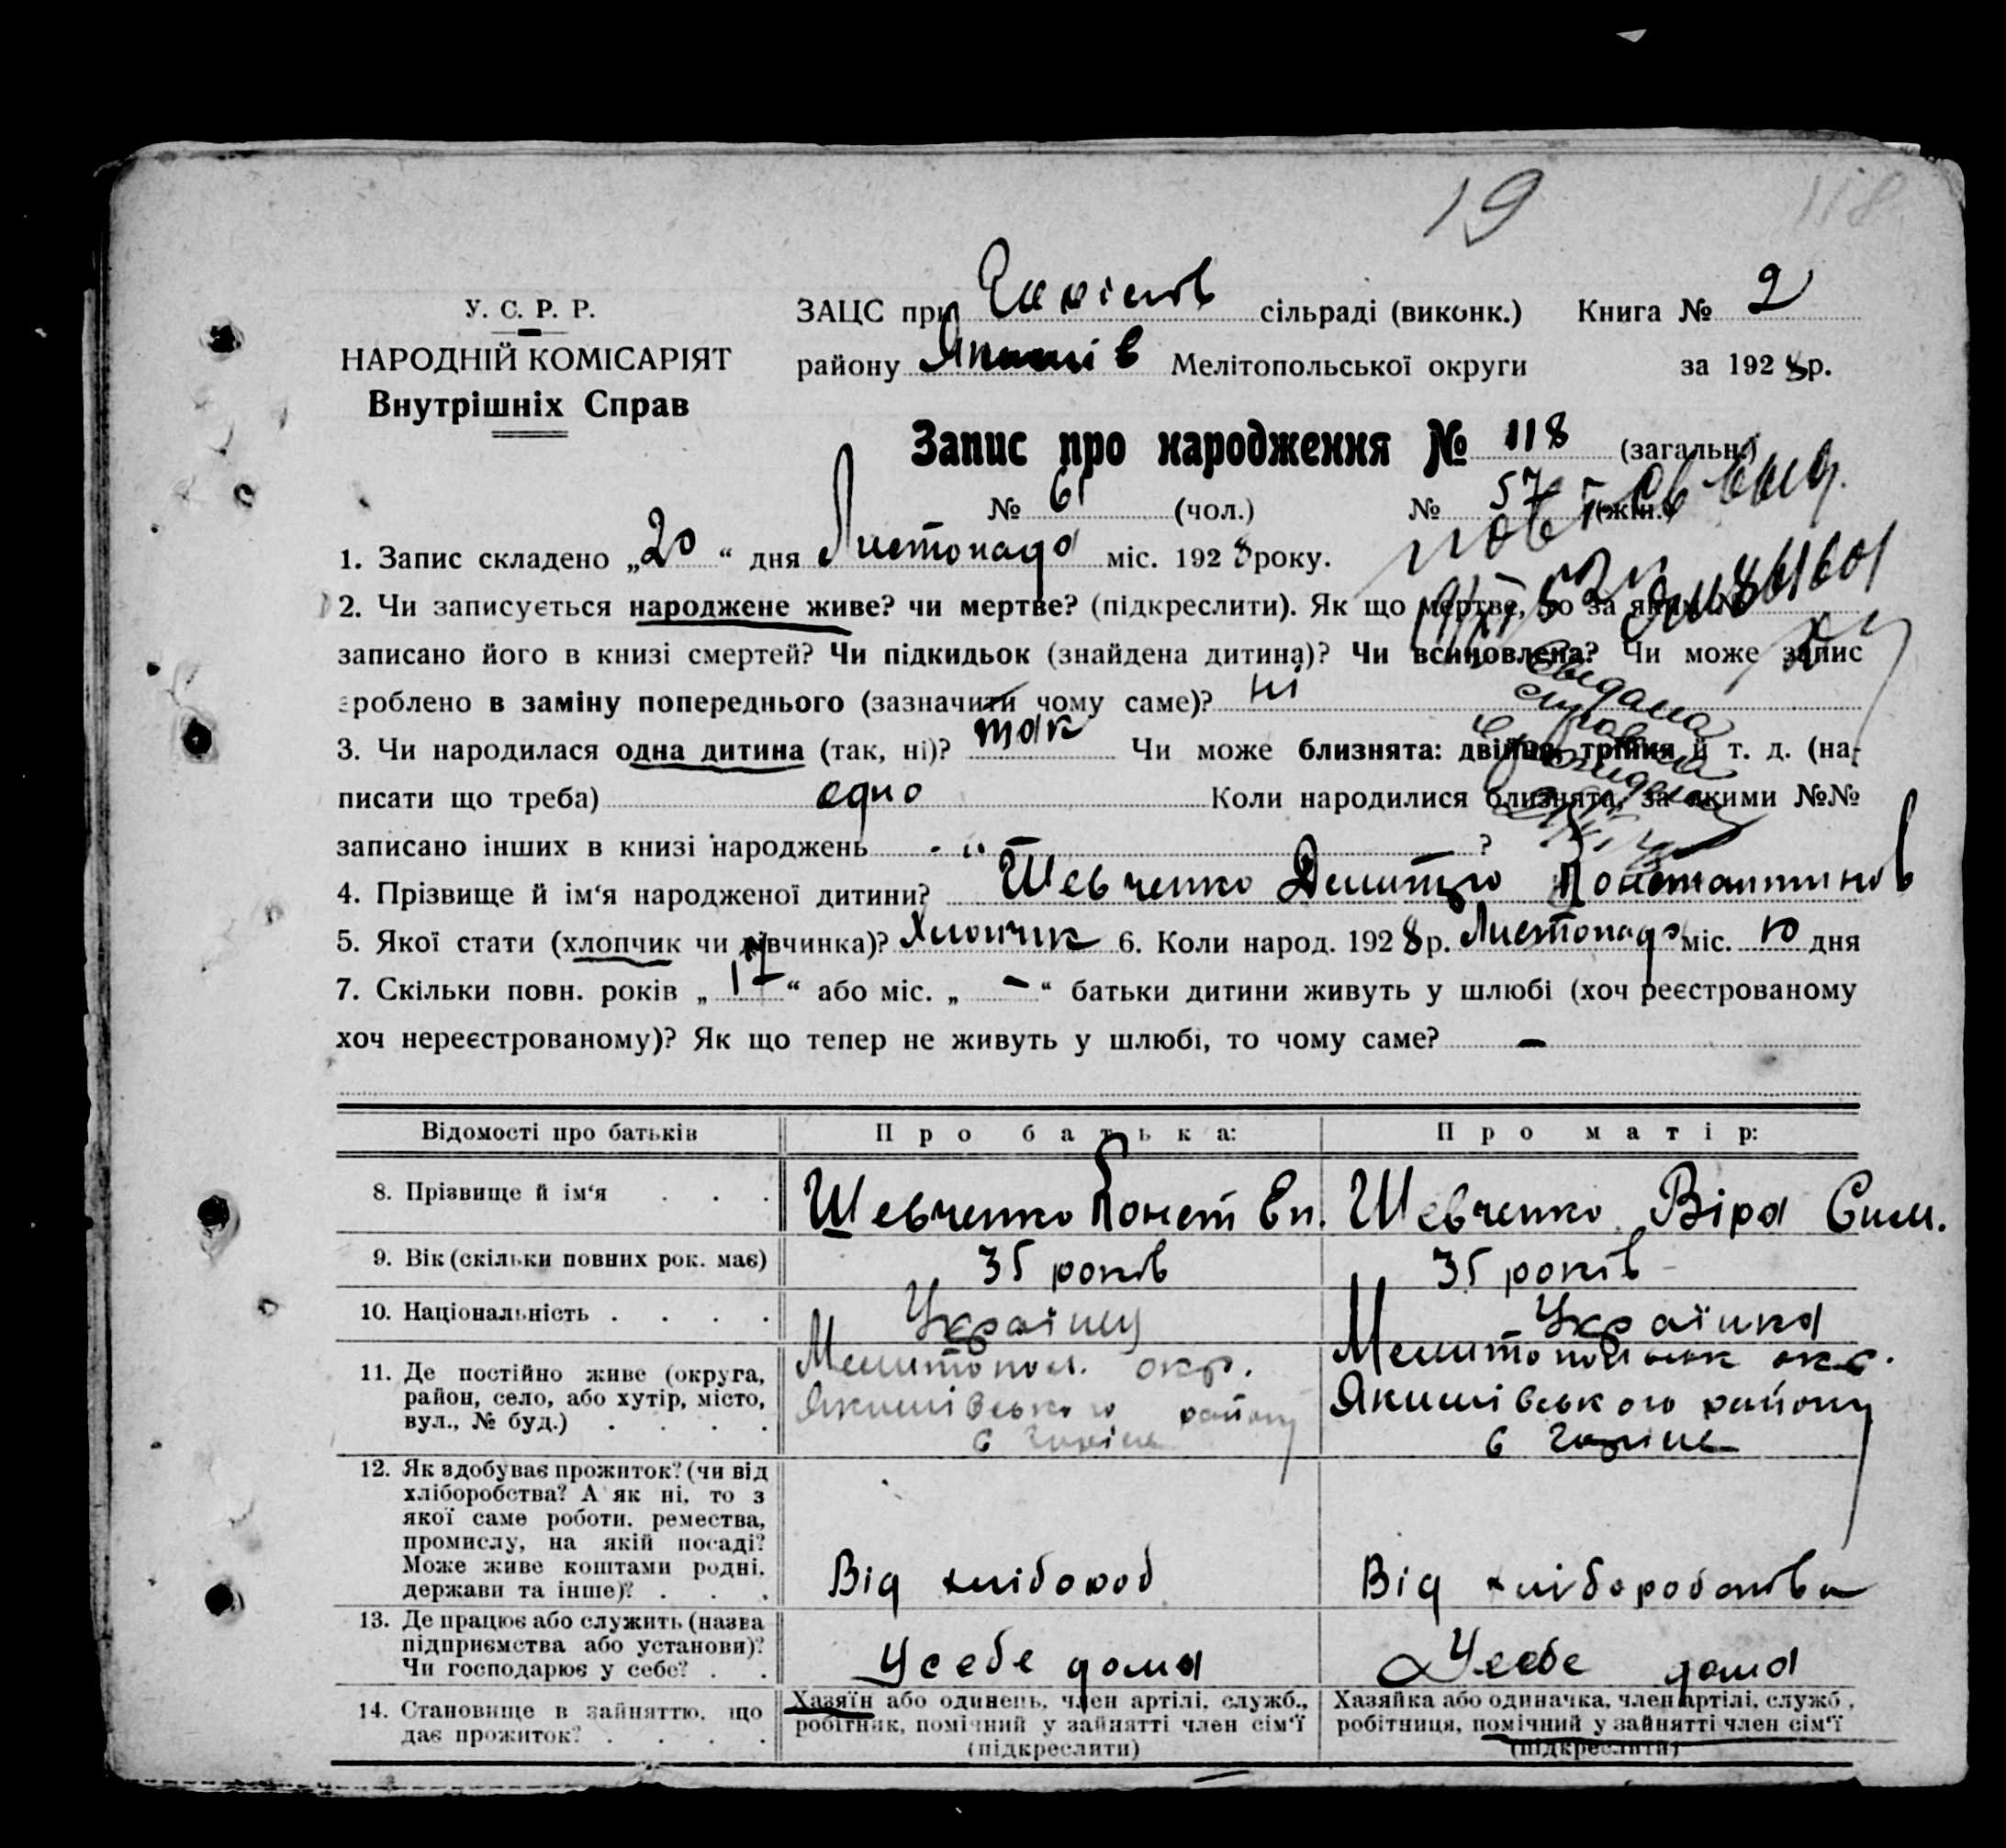 19 118
У. С. Р. Р.
НАРОДНІЙ КОМІСАРІЯТ
Внутрішніх Справ
ЗАЦС при сільраді (виконк.) Книга № 2
району Якимів Мелітопольської округи за 1928 р.
Запис про народження № 118 (загальн.)
№ 61 (чол.) № 57 (жін.)
1. Запис складено „20“ дня Листопада міс. 1928 року.
2. Чи записується народжене живе? чи мертве? (підкреслити). Як що мертве, то за яким №
записано його в книзі смертей? Чи підкидьок (знайдена дитина)? Чи всиновлена? Чи може запис
зроблено в заміну попереднього (зазначити чому саме)? ні
3. Чи народилася одна дитина (так, ні)? так Чи може близнята: двійня, трійня й т. д. (на-
писати що треба) одно Коли народилися близнята, за якими №№
записано інших в книзі народжень - " - ?
4. Прізвище й ім‘я народженої дитини? Шевченко Дмитро Константинов
5. Якої стати (хлопчик чи дівчинка)? Хлопчик 6. Коли народ. 1928 р. Листопада міс. 10 дня
7. Скільки повн. років „17“ або міс. „-“ батьки дитини живуть у шлюбі (хоч реєстрованому
хоч нереєстрованому)? Як що тепер не живуть у шлюбі, то чому саме? -
Відомості про батьків Про батька: Про матір:
8. Прізвище й ім‘я Шевченко Конст Еп. Шевченко Віра Сим.
9. Вік (скільки повних рок. має) 35 років 35 років
10. Національність Українка
11. Де постійно живе (округа,
район, село, або хутір, місто,
вул., № буд.)
Мелитопол. окр.
Якимівського району
Мелитопольськ окр.
Якимівського району
12. Як здобуває прожиток? (чи від
хліборобства? А як ні, то з
якої саме роботи, ремества,
промислу, на якій посаді?
Може живе коштами родні,
держави та інше)?
Від хлібороб
Від хліборобства
13. Де працює або служить (назва
підприємства або установи)?
Чи господарює у себе?
У себе дома
У себе дома
14. Становище в зайняттю, що
дає прожиток?
Хазяїн або одинець, член артілі, служб.,
робітник, помічний у зайнятті член сім‘ї
(підкреслити)
Хазяйка або одиначка, член артілі, служб.,
робітниця, помічний у зайнятті член сім‘ї
(підкреслити)